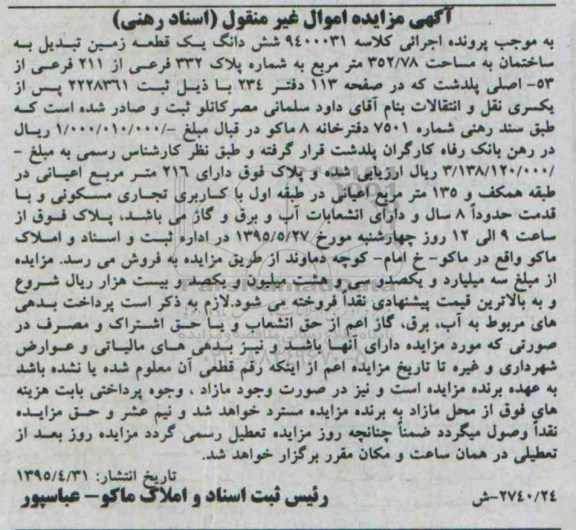 آگهی مزایده اموال غیر منقول (اسناد رهنی)
به موجب پرونده اجرائی کلاسه ۹۴۰۰۰۳۱ شش دانگ یک قطعه زمین تبدیل به
ساختمان به مساحت ۳۵۲/۷۸ متر مربع به شماره پلاک ۳۳۲ فرعی از ۲۱۱ فرعی از
۵۳- اصلی پلدشت که در صفحه ۱۱۳ دفتر ۲۳۴ با ذیل ثبت ۲۲۲۸۳۶۱ پس از
یکسری نقل و انتقالات بنام آقای داود سلمانی مصرکانلو ثبت و صادر شده است که
طبق سند رهنی شماره ۷۵۰۱ دفترخانه ۸ ماکو در قبال مبلغ -/۱/۰۰۰/۰۱۰/۰۰۰ ریال
در رهن بانک رفاه کارگران پلدشت قرار گرفته و طبق نظر کارشناس رسمی به مبلغ -
/۳/۱۳۸/۱۲۰/۰۰۰ ریال ارزیابی شده و پلاک فوق دارای ۲۱۶ متر مربع اعیانی در
طبقه همکف و ۱۳۵ متر مربع اعیانی در طبقه اول با کاربری تجاری مسکونی و با
قدمت حدوداً ۸ سال و دارای انشعابات آب و برق و گاز می باشد، پلاک فوق از
ساعت ۹ الی ۱۲ روز چهارشنبه مورخ ۱۳۹۵/۵/۲۷ در اداره ثبت و اسناد و املاک
ماکو واقع در ماکو- خ امام- کوچه دماوند از طریق مزایده به فروش می رسد. مزایده
از مبلغ سه میلیارد و یکصد و سی و هشت میلیون و یکصد و بیست هزار ریال شروع
و به بالاترین قیمت پیشنهادی نقداً فروخته می شود.لازم به ذکر است پرداخت بدهی
های مربوط به آب، برق، گاز اعم از حق انشعاب و یا حق اشتراک و مصرف در
صورتی که مورد مزایده دارای آنها باشد و نیز بدهی های مالیاتی و عوارض
شهرداری و غیره تا تاریخ مزایده اعم از اینکه رقم قطعی آن معلوم شده یا نشده باشد
به عهده برنده مزایده است و نیز در صورت وجود مازاد ، وجوه پرداختی بابت هزینه
های فوق از محل مازاد به برنده مزایده مسترد خواهد شد و نیم عشر و حق مزایده
نقداً وصول میگردد ضمناً چنانچه روز مزایده تعطیل رسمی گردد مزایده روز بعد از
تعطیلی در همان ساعت و مکان مقرر برگزار خواهد شد.
تاریخ انتشار: ۱۳۹۵/۴/۳۱
رئیس ثبت اسناد و املاک ماکو- عباسپور
۲۷۴۰/۲۴-ش